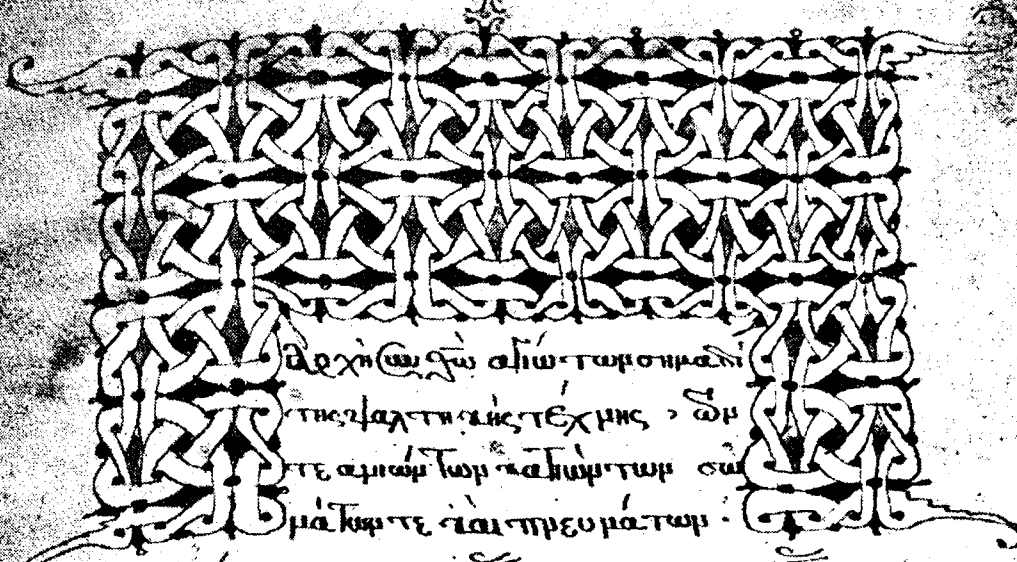 Ἀρχὴ σὺν θῷ ἁγίῳ τῶν σημαδί
της ψαλτικῆς τέχνης, τῶν
τε ἀνιόντων καὶ κατιόντων σω
μάτων τε καὶ πνευμάτων·